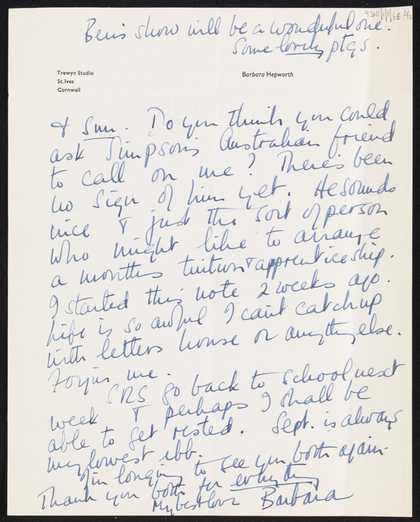 Ben's show will be a wonderful one.
Some lovely ptgs.
Trewyn Studio
St. Ives
Cornwall
Barbara Hepworth
& Sun. Do you think you could
ask Simpson's Australian friend
to call on me? There's been
no sign of him yet. He sounds
nice & just the sort of person
who might like to arrange
a months tuition & apprenticeship.
I started this note 2 weeks ago.
Life is so awful I can't catch up
with letters house or anything else.
Forgive me.
SRS go back to school next
week & perhaps I shall be
able to get rested. Sept. is always
my lowest ebb.
I'm longing to see you both again.
Thank you both for everything
My best love Barbara